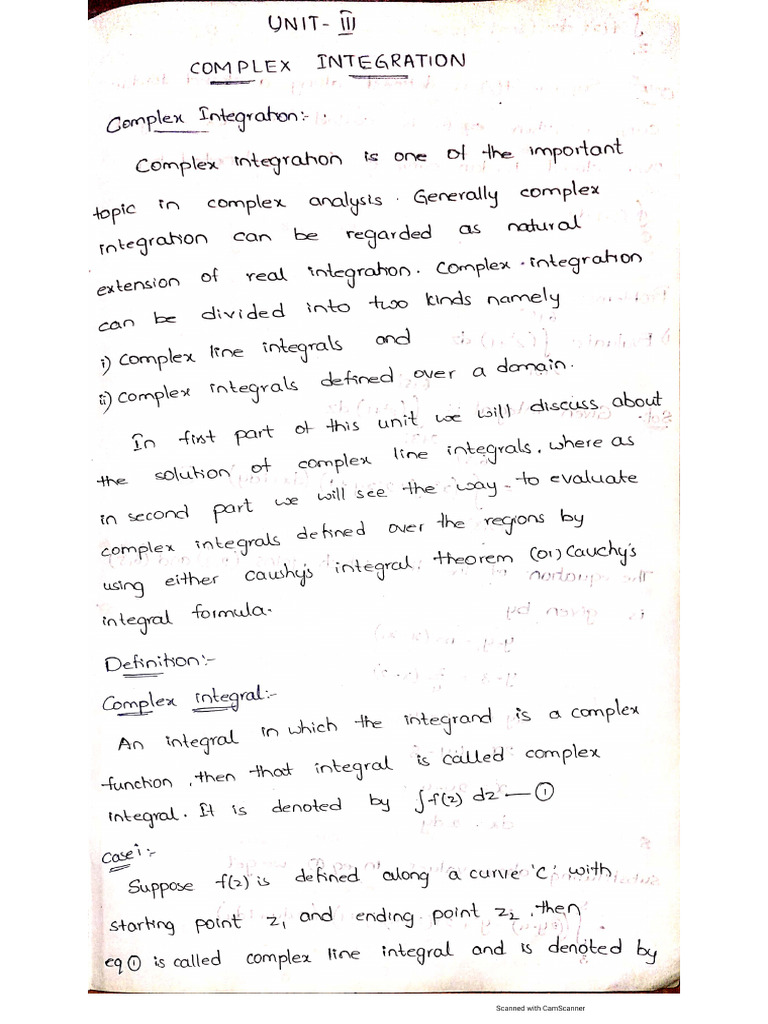 UNIT - III
COMPLEX INTEGRATION
Complex Integration:-
Complex integration is one of the important
topic in complex analysis. Generally complex
integration can be regarded as natural
extension of real integration. Complex integration
can be divided into two kinds namely
i) Complex line integrals and
ii) Complex integrals defined over a domain.
In first part of this unit we will discuss about
the solution of complex line integrals, where as
in second part we will see the way to evaluate
complex integrals defined over the regions by
using either caushy's integral theorem (or) Cauchy's
integral formula.
Definition:-
Complex integral:-
An integral in which the integrand is a complex
function, then that integral is called complex
integral. It is denoted by ∫f(z) dz — ①
Case i:-
Suppose f(z) is defined along a curve 'C' with
starting point z₁ and ending point z₂, then
eq ① is called complex line integral and is denoted by
Scanned with CamScanner